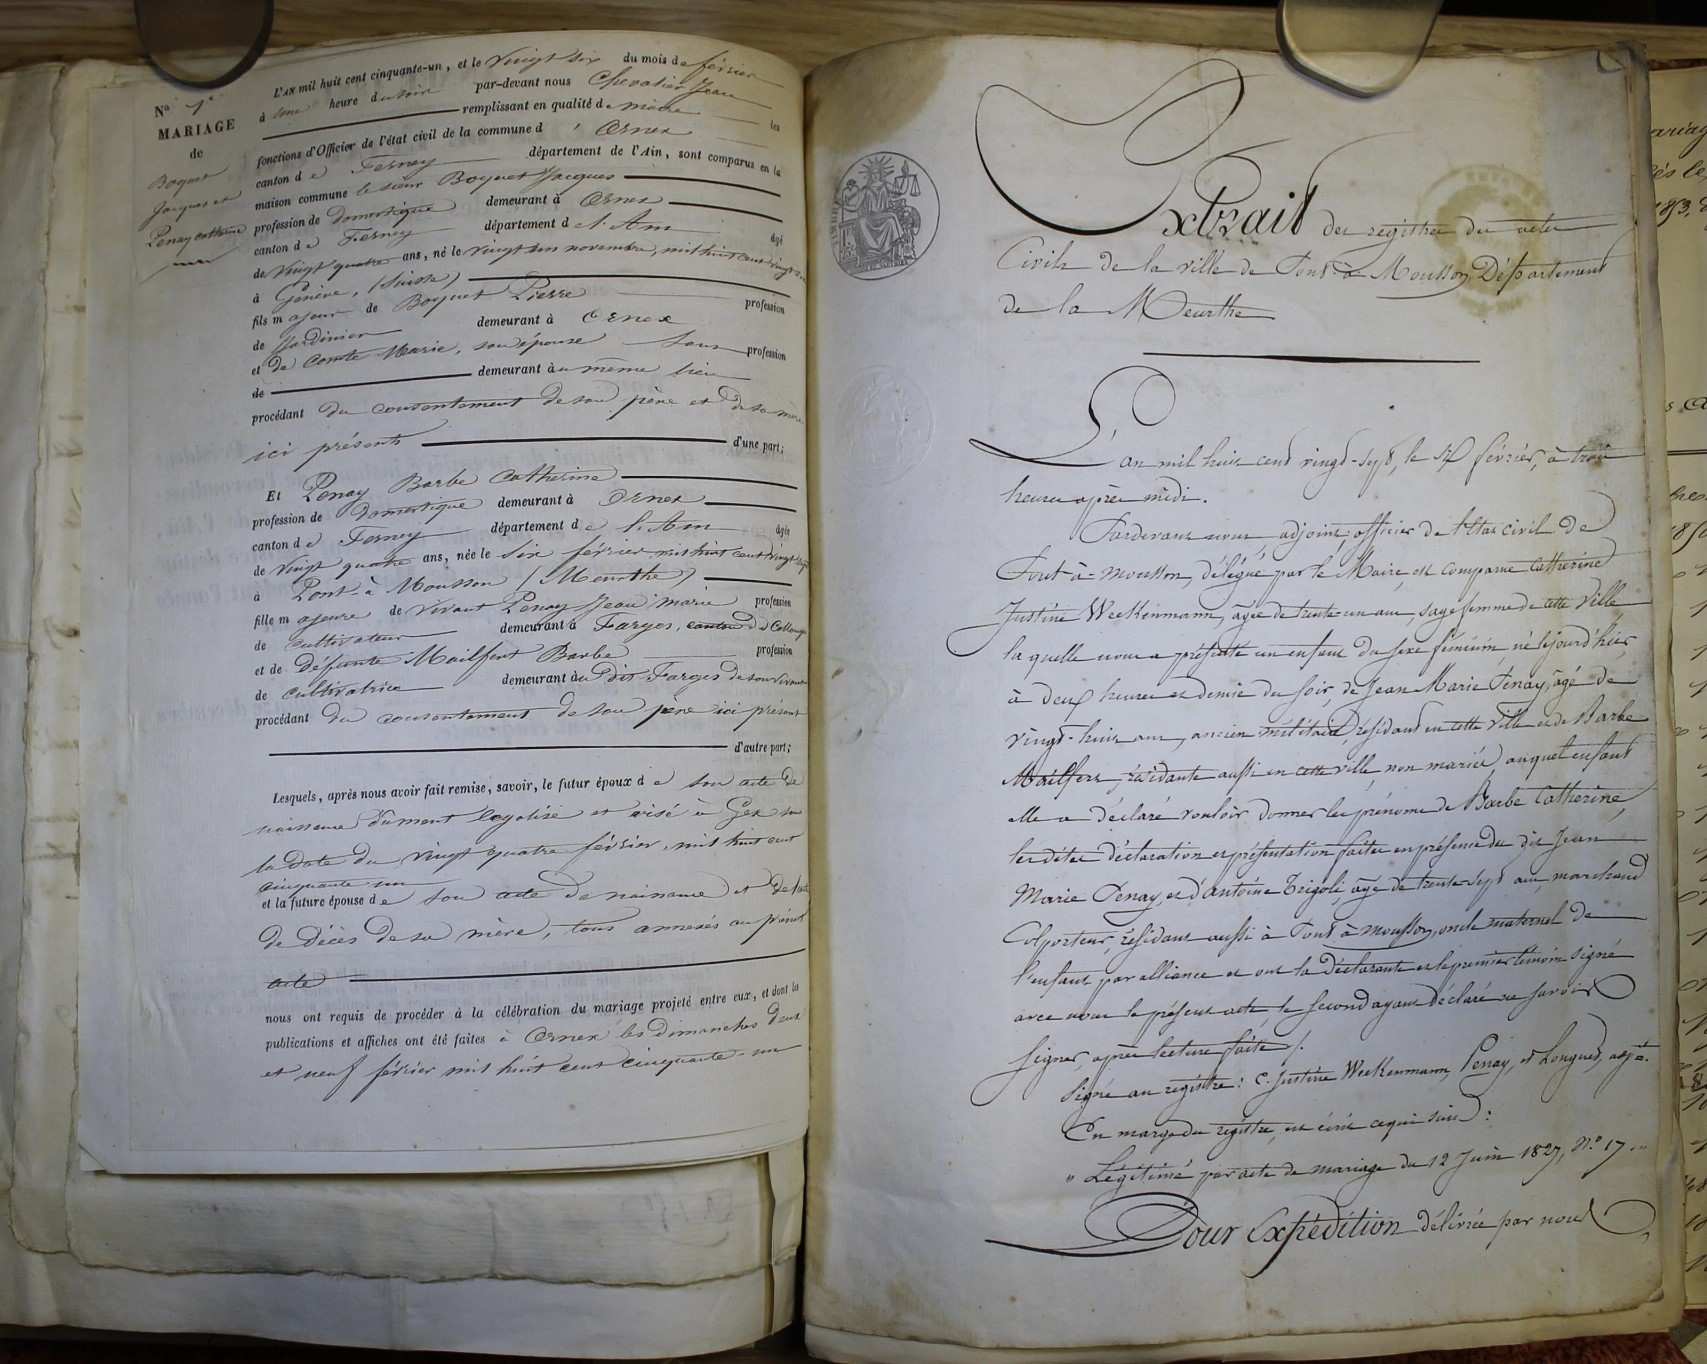 N° 1er
MARIAGE
de
Boquet
Jacques et
Penay Catherine
L'AN mil huit cent cinquante-un, et le vingt six du mois de février
à une heure du soir par-devant nous Chevalier Jean
remplissant en qualité de maire les
fonctions d'Officier de l'état civil de la commune d'Ornex
canton de Ferney département de l'Ain, sont comparus en la
maison commune le sieur Boquet Jacques
profession de domestique demeurant à Ornex
canton de Ferney département de l'Ain âgé
de vingt quatre ans, né le vingt un novembre, mil huit cent vingt six
à Genève, (Suisse)
fils majeur de Boquet Pierre profession
de Jardinier demeurant à Ornex
et de Comte Marie, son épouse sans profession
de demeurant au même lieu
procédant du consentement de son père et de sa mère
ici présents d'une part;
Et Penay Barbe Catherine
profession de domestique demeurant à Ornex
canton de Ferney département de l'Ain âgée
de vingt quatre ans, née le six février mil huit cent vingt sept
à Pont-à-Mousson (Meurthe)
fille majeure de vivant Penay Jean Marie profession
de cultivateur demeurant à Farges, canton de Collonges
et de défunte Mailfert Barbe profession
de cultivatrice demeurant au dit Farges de son vivant
procédant du consentement de son père ici présent
d'autre part;
Lesquels, après nous avoir fait remise, savoir, le futur époux de son acte de
naissance dûment légalisé et visé à Gex sous
la date du vingt quatre février, mil huit cent
cinquante un
et la future épouse de son acte de naissance et de l'acte
de décès de sa mère, tous annexés au présent
acte
nous ont requis de procéder à la célébration du mariage projeté entre eux, et dont les
publications et affiches ont été faites à Ornex les dimanches deux
et neuf février mil huit cent cinquante-un
Extrait des registres des actes
Civils de la ville de Pont-à-Mousson, Département
de la Meurthe
L'an mil huit cent vingt-sept, le sept février, à trois
heures après midi.
Pardevant nous adjoint, officier de l'état civil de
Pont-à-Mousson, délégué par le Maire, est comparue Catherine
Justine Weekenmann, âgée de trente un ans, sage femme de cette ville
la quelle nous a présenté un enfant du sexe féminin, né le jourd'hier,
à deux heures et demie du soir, de Jean Marie Penay, âgé de
vingt-huit ans, ancien militaire, résidant en cette ville et de Barbe
Mailfert, résidante aussi en cette ville, non mariés, auquel enfant
elle a déclaré vouloir donner les prénoms de Barbe Catherine,
les dites déclaration et présentation faites en présence du dit Jean
Marie Penay, et d'antoine Trigoli, âgé de trente-sept ans, marchand
Colporteur, résidant aussi à Pont à Mousson, oncle maternel de
l'enfant par alliance et ont la déclarante et le premier témoin signé
avec nous le présent acte le second ayant déclaré ne savoir
signer, après lecture faite /.
Signé au registre: C. Justine Weekenmann, Penay, et Longuet, adjt.
En marge du registre, est écrit ce qui suit:
" Légitimé par acte de mariage du 12 Juin 1827, N.° 17 "
Pour Expédition délivrée par nous